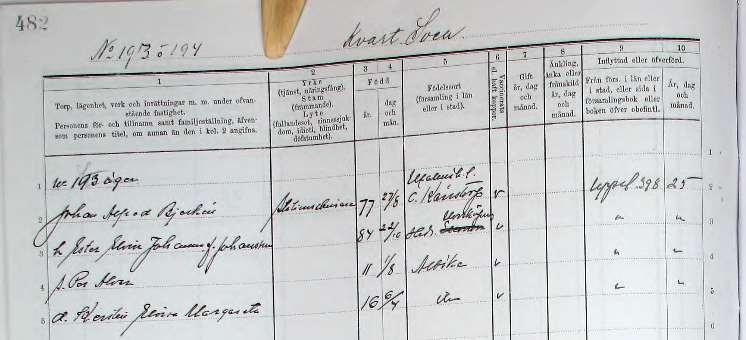 482
No 193 o 194
Kvart. Loen
1
Torp, lägenhet, verk och inrättningar m. m. under ofvan-
stående fastighet.
Personens för- och tillnamn samt familjeställning, äfven-
som personens titel, om annan än den i kol. 2 angifna.
2
Yrke
(tjenst, näringsfång).
Stam
(främmande).
Lyte
(fallandesot, sinnessjuk-
dom, idioti, blindhet,
döfstumhet).
3 4
Född
år. dag och mån.
5
Födelseort
(församling i län
eller i stad).
6
Vaccinerats
el. haft koppor.
7
Gift
år, dag
och
månad.
8
Änkling,
änka eller
frånskild
år, dag
och
månad.
9 10
Inflyttad eller öfverförd.
Från förs. i län eller
i stad, eller sida i
församlingsbok eller
boken öfver obefintl.
År, dag
och
månad.
1 No 193 äger 1
2 Johan Alfred 77 27/8 C. v Uppsl. 398 25 2
3 h. Ester Elvira 84 22/10 v " " 3
4 s. Per Alvar 11 1/8 Arvika v " " 4
5 d. Kerstin Elvira Margareta 16 6/4 v " " 5